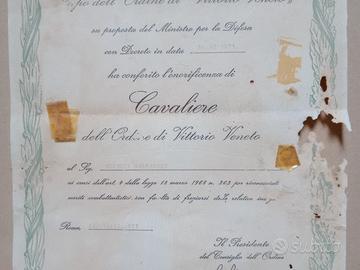 dell'Ordine di "Vittorio Veneto"
su proposta del Ministro per la Difesa
con Decreto in data
ha conferito l'onorificenza di
Cavaliere
dell'Ordine di Vittorio Veneto
al Sig.
ai sensi dell'art. 4 della legge 18 marzo 1968 n. 263 per riconosciuti
meriti combattentistici con facoltà di fregiarsi della relativa
Roma,
Il Presidente
del Consiglio dell'Ordine
subito